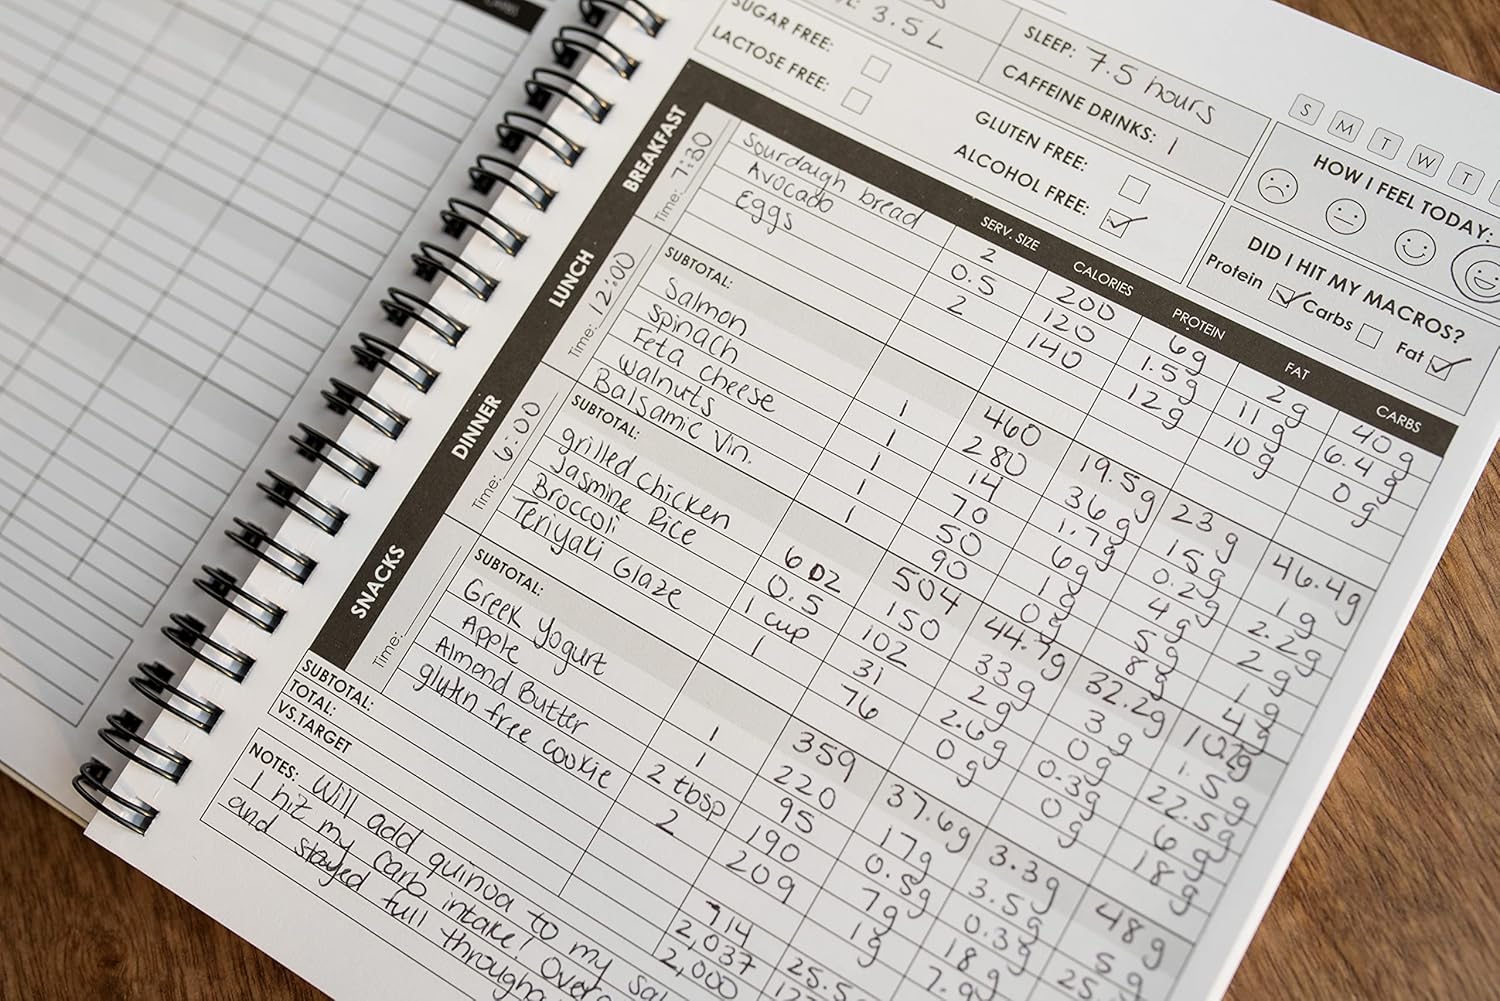 CARBS
3.5 L
SLEEP: 7.5 hours
SUGAR FREE:
CAFFEINE DRINKS: 1
LACTOSE FREE:
GLUTEN FREE:
ALCOHOL FREE:
S M T W T
HOW I FEEL TODAY:
DID I HIT MY MACROS?
Protein Carbs Fat
SERV. SIZE CALORIES PROTEIN FAT CARBS
BREAKFAST
Time: 7:30
Sourdough bread 2 200 6g 2g 40g
Avocado 0.5 120 1.5g 11g 6.4g
Eggs 2 140 12g 10g 0g
SUBTOTAL: 460 19.5g 23g 46.4g
LUNCH
Time: 12:00
Salmon 1 280 36g 15g 1g
Spinach 1 14 1.7g 0.2g 2.2g
Feta cheese 1 70 6g 4g 2g
Walnuts 1 50 1g 5g 1g
Balsamic Vin. 90 0g 8g 4g
SUBTOTAL: 504 44.7g 32.2g 10.2g
DINNER
Time: 6:00
grilled chicken 6 oz 150 33g 3g 1.5g
Jasmine Rice 0.5 102 2g 0g 22.5g
Broccoli 1 cup 31 2.6g 0.3g 6g
Teriyaki Glaze 1 76 0g 0g 18g
SUBTOTAL: 359 37.6g 3.3g 48g
SNACKS
Time:
Greek Yogurt 1 220 17g 3.5g 5g
Apple 1 95 0.5g 0.3g 25.
Almond Butter 2 tbsp 190 7g 18g
gluten free cookie 2 209 1g 7.9g
SUBTOTAL: 714 25.5
TOTAL: 2,037
VS.TARGET 2,000
NOTES: Will add quinoa to my sal
I hit my carb intake! Over
and stayed full through